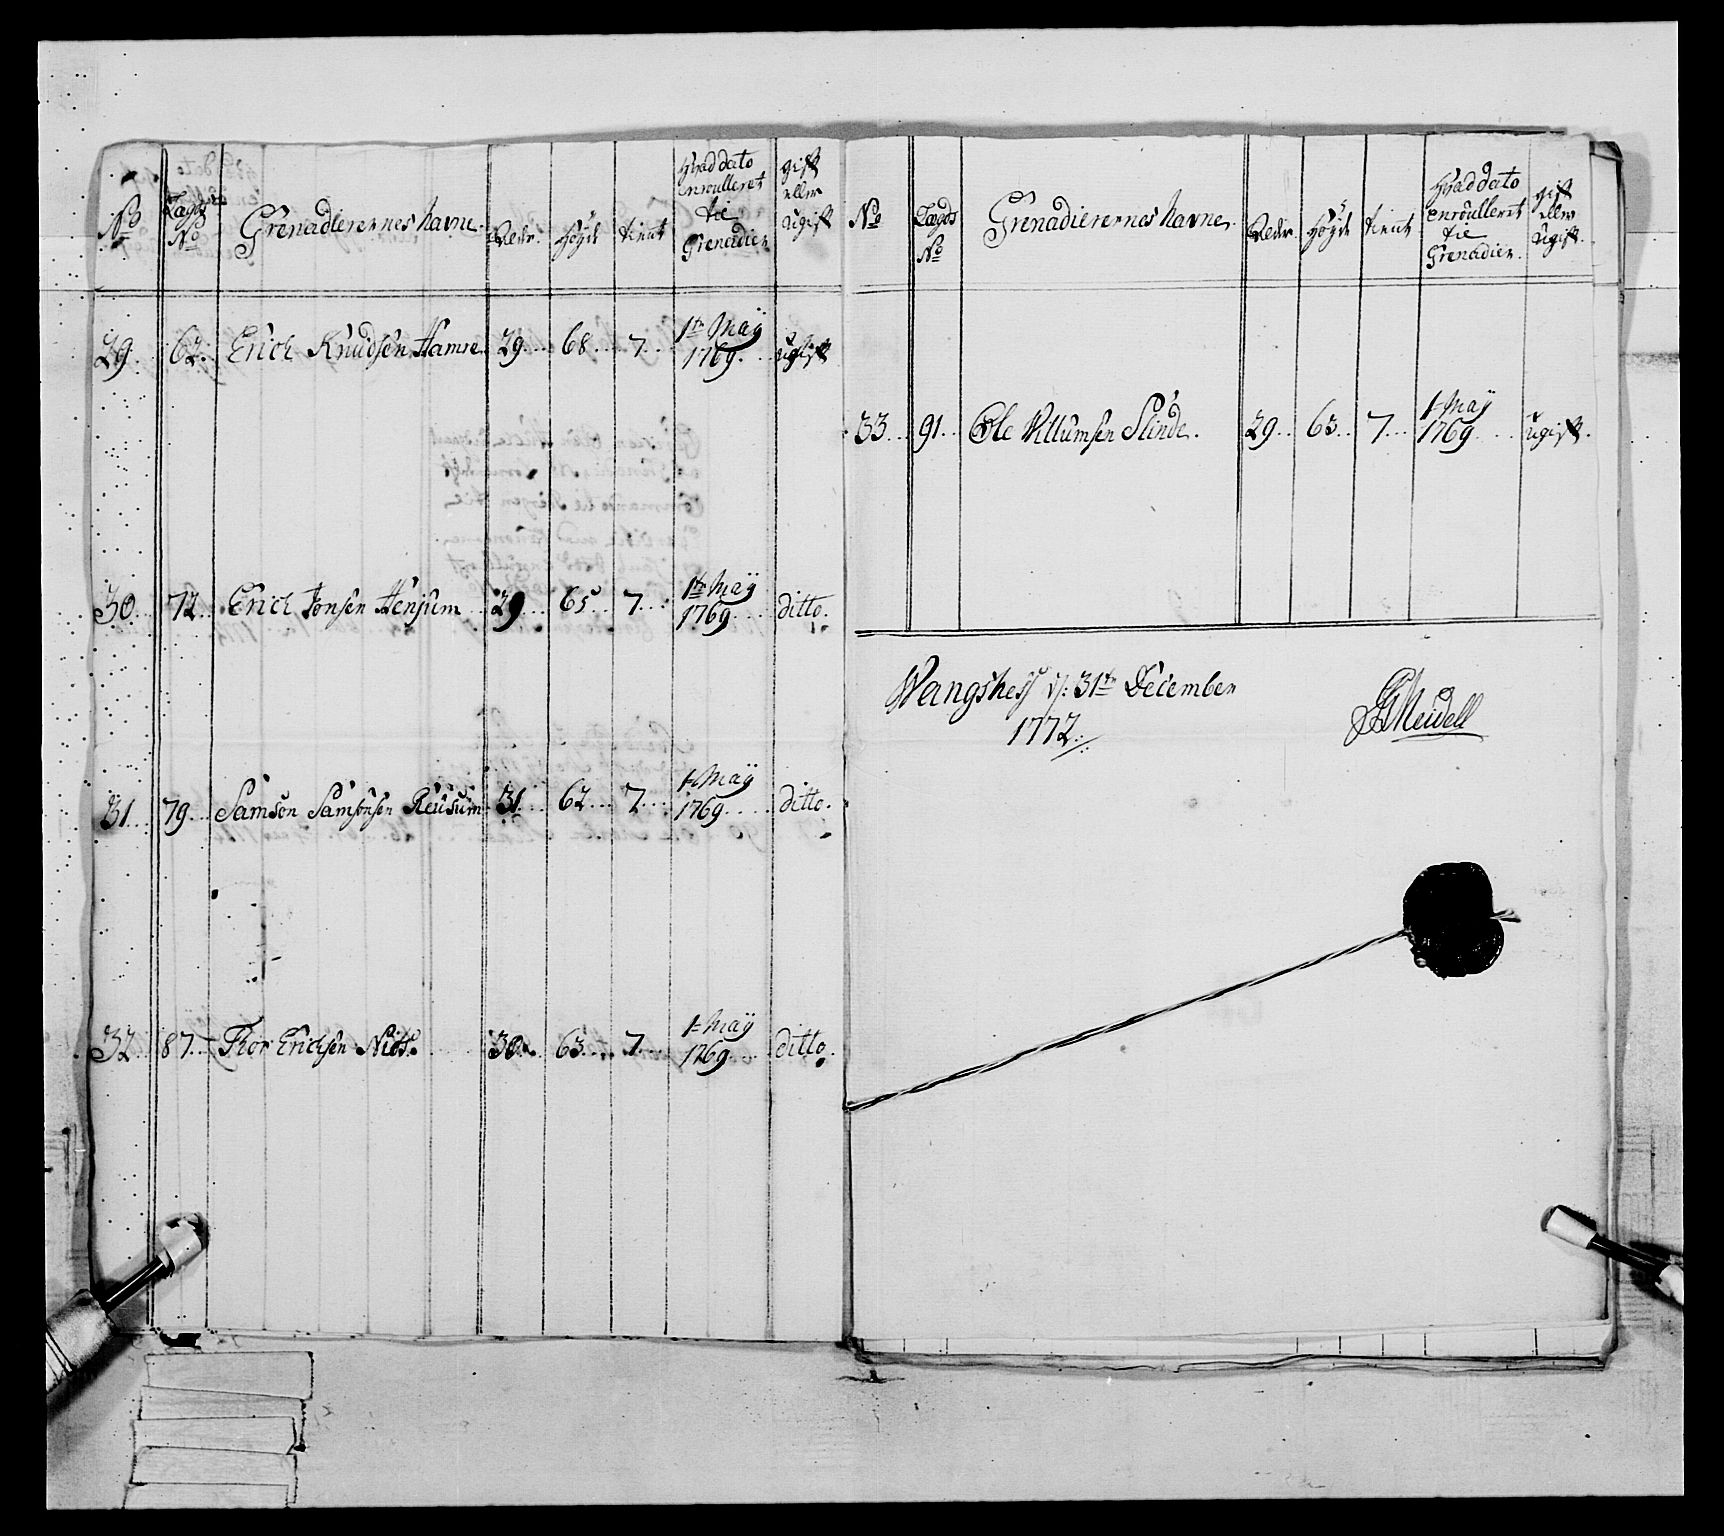 No Lægds No Grenadierernes navne. Alder. Høyde tient Hvad dato enroulleret til Grenadier gift eller ugift
29. 62. Erich Knudsen Hamre 29. 68. 7. 1te Maÿ 1769. ugift
30. 72. Erich Jonsen Henjum 29. 65. 7. 1te Maÿ 1769. ditto.
31. 79. Samson Samsonsen Reusum 31. 62. 7. 1te Maÿ 1769. ditto.
32. 87. Thor Erichsen Nids. 30. 63. 7. 1te Maÿ 1769. ditto.
No Lægds No Grenadierernes navne. Alder. Høyde tient Hvad dato enroulleret til Grenadier. gift eller ugift.
33. 91. Ole Villumsen Slinde. 29. 63. 7. 1te Maÿ 1769. ugift.
31te December
1772.
Meidell